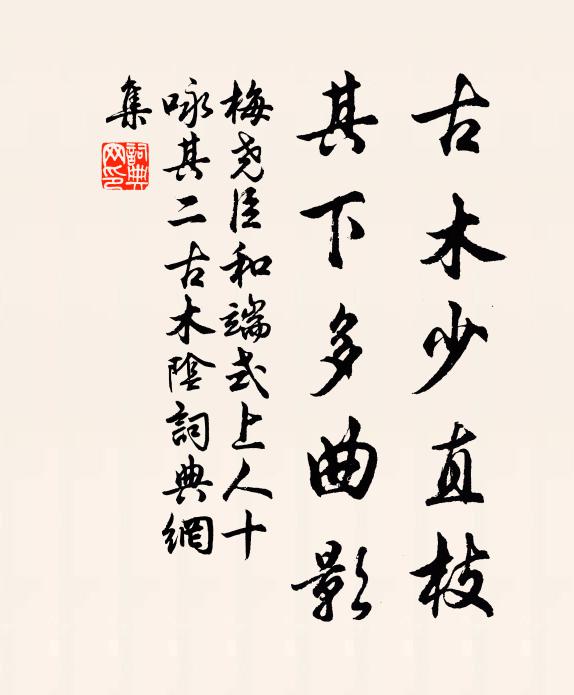 古木少直枝
其下多曲影
梅堯臣和端式上人十
咏其二古木陰詞典網
集
詞典網印